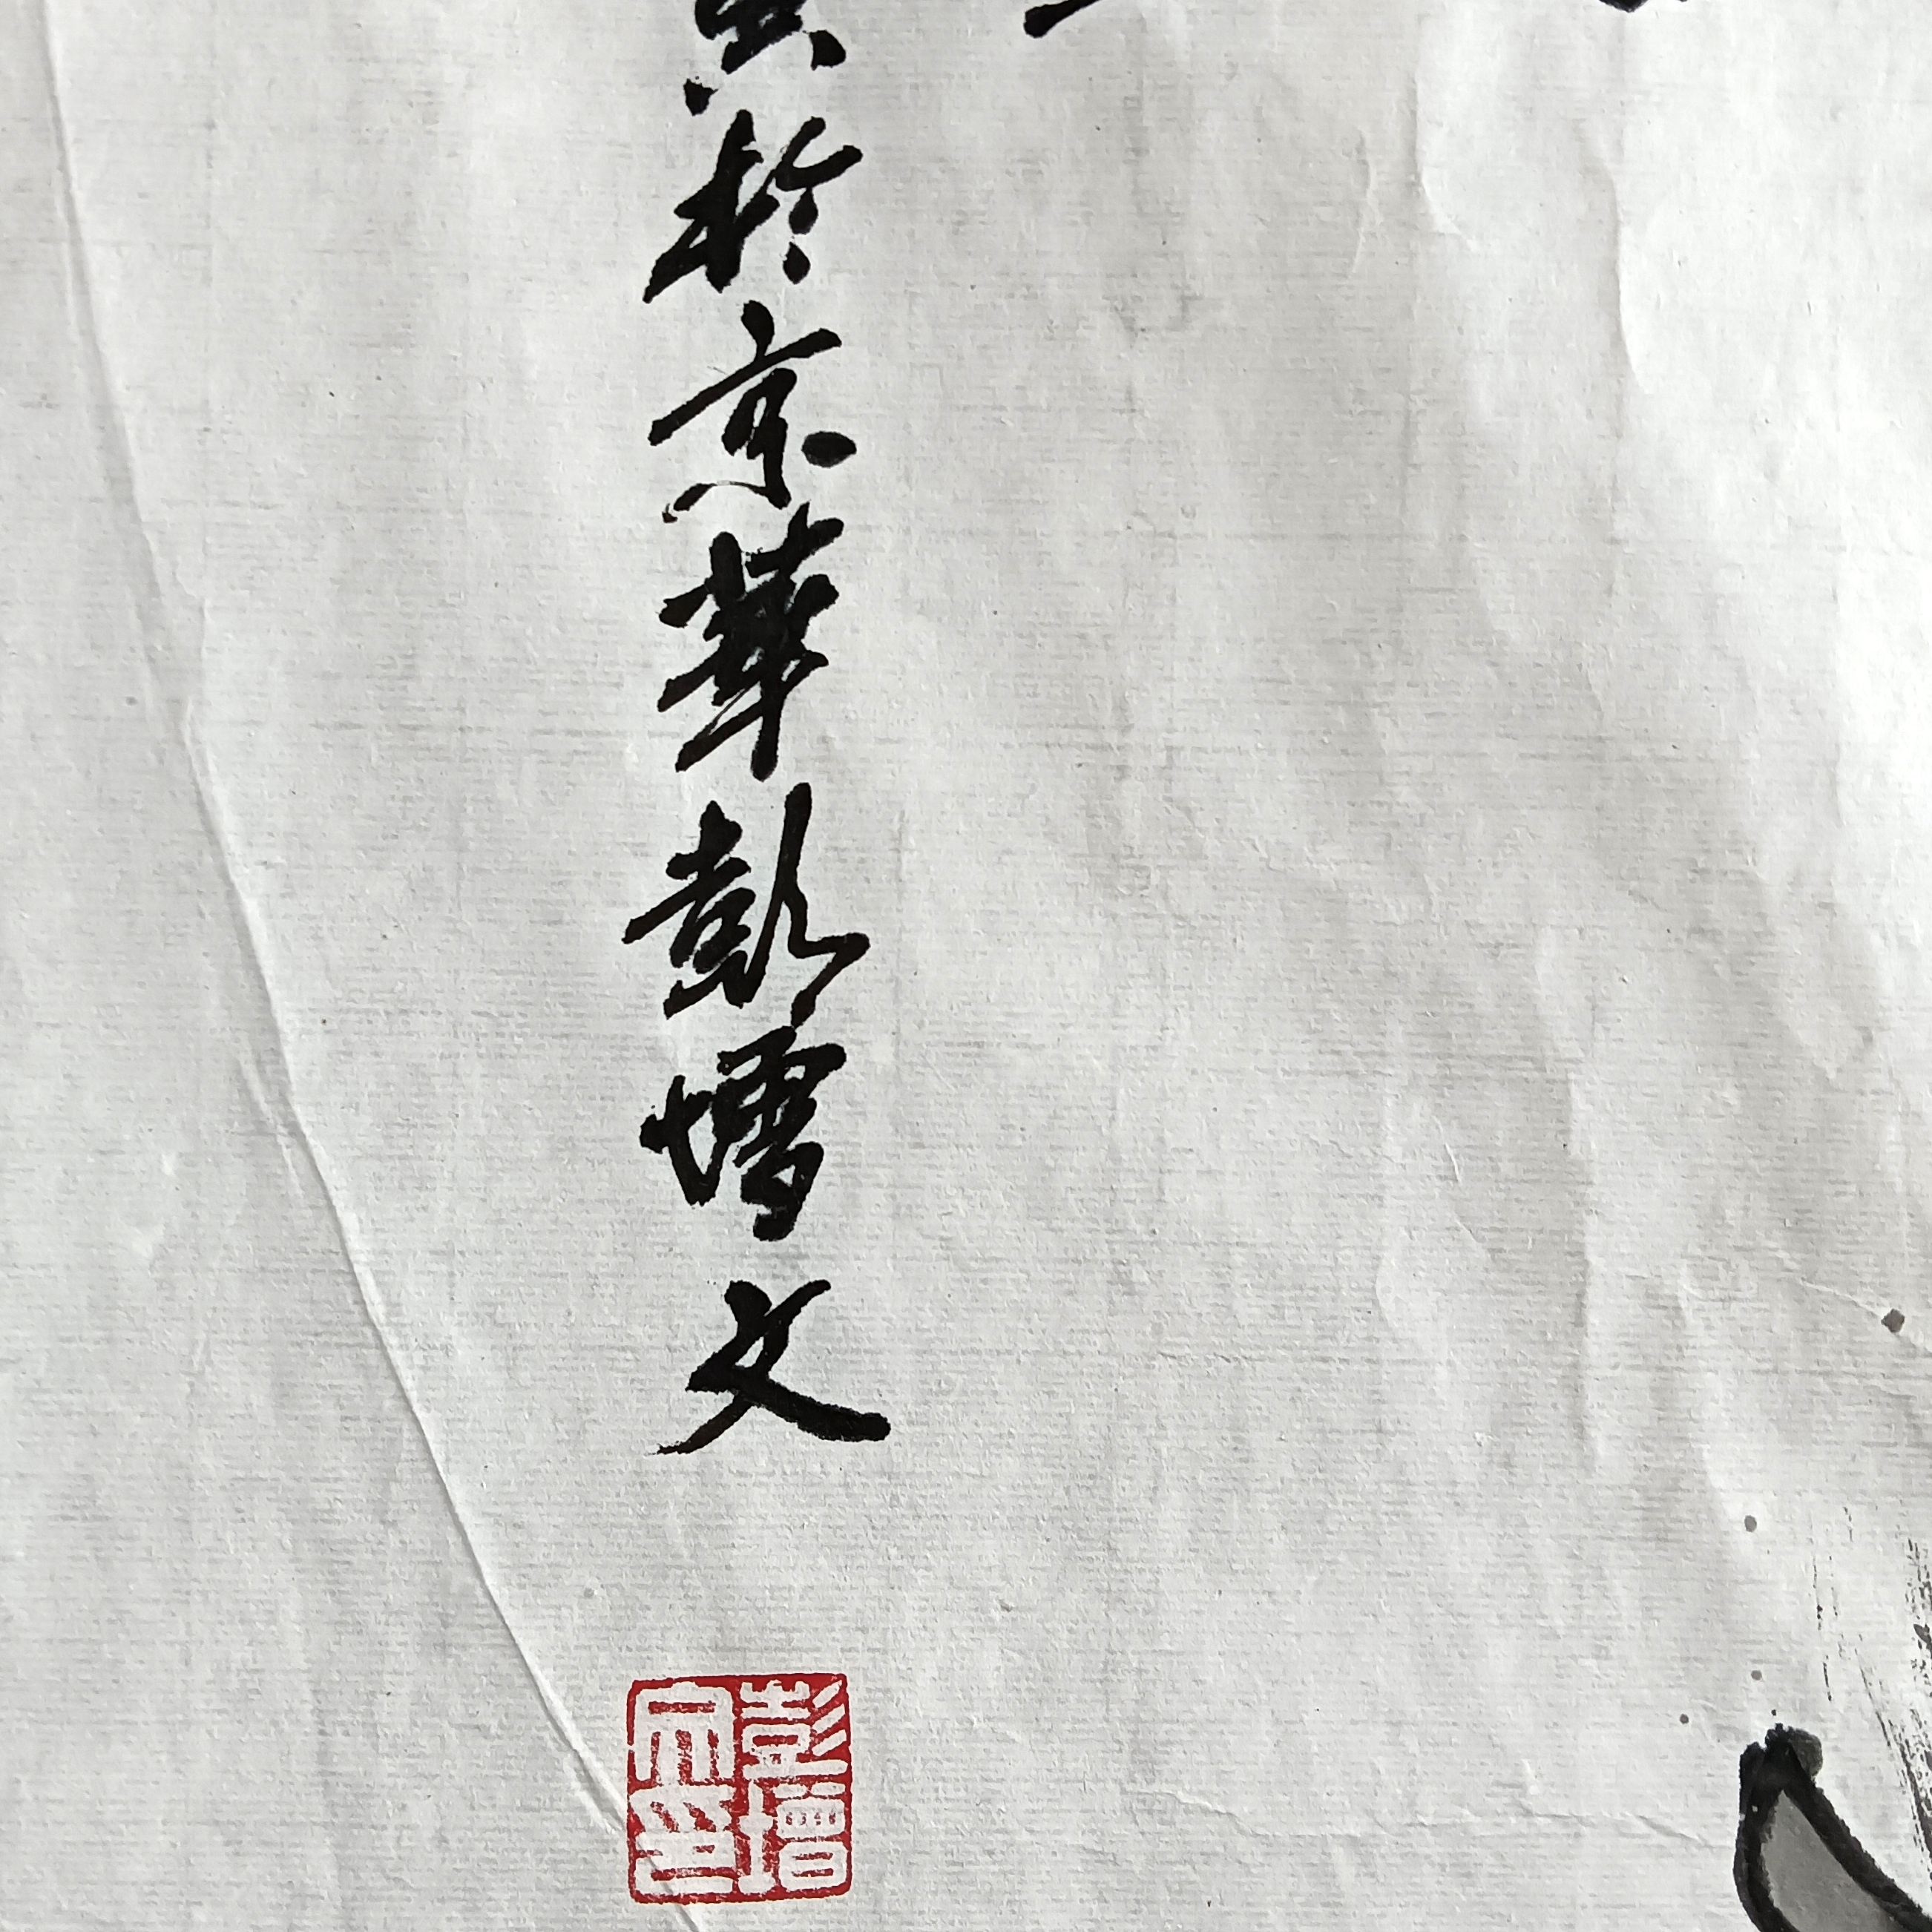 於京華彭增文
彭增
文印